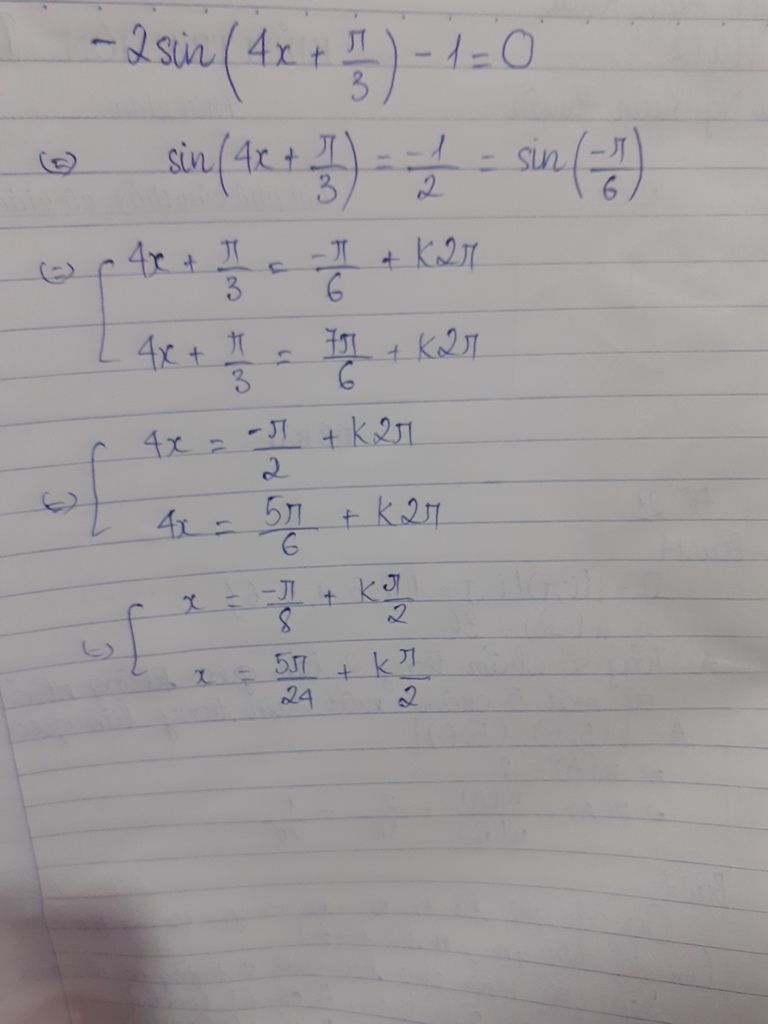 -2sin(4x + π/3) - 1 = 0
(=) sin(4x + π/3) = -1/2 = sin(-π/6)
(=) [ 4x + π/3 = -π/6 + K2π
4x + π/3 = 7π/6 + K2π
(=) [ 4x = -π/2 + K2π
4x = 5π/6 + K2π
(=) [ x = -π/8 + Kπ/2
x = 5π/24 + Kπ/2